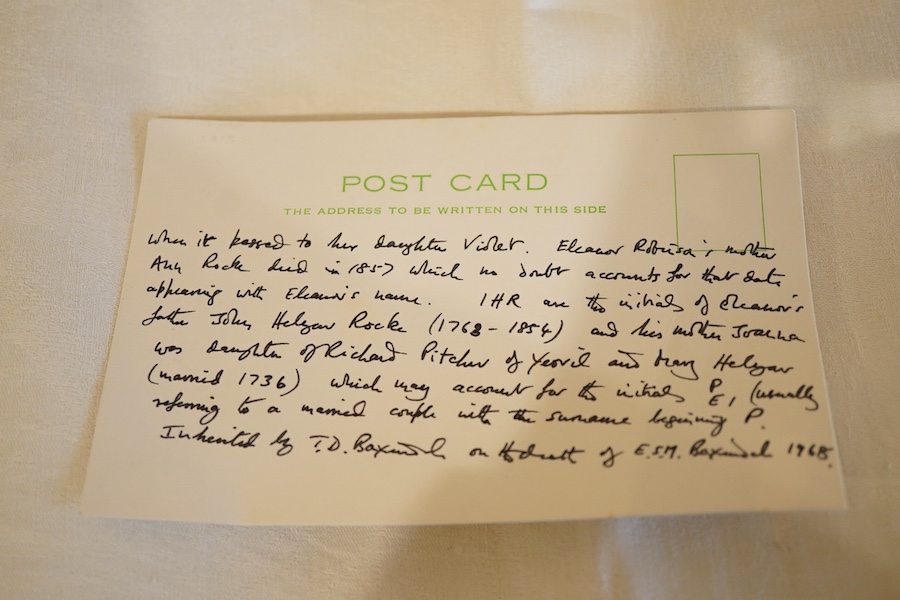 POST CARD
THE ADDRESS TO BE WRITTEN ON THIS SIDE
when it passed to her daughter Violet. Eleanor Robinson's mother
Ann Rocke died in 1857 which no doubt accounts for that date
appearing with Eleanor's name. IHR are the initials of Eleanor's
father John Helyar Rocke (1768-1854) and his mother Joanna
was daughter of Richard Pitcher of Yeovil and Mary Helyar
(married 1736) which may account for the initials P E, (usually
referring to a married couple with the surname beginning P.
Inherited by T.D. Baxendale on the death of E.S.M. Baxendale 1968.